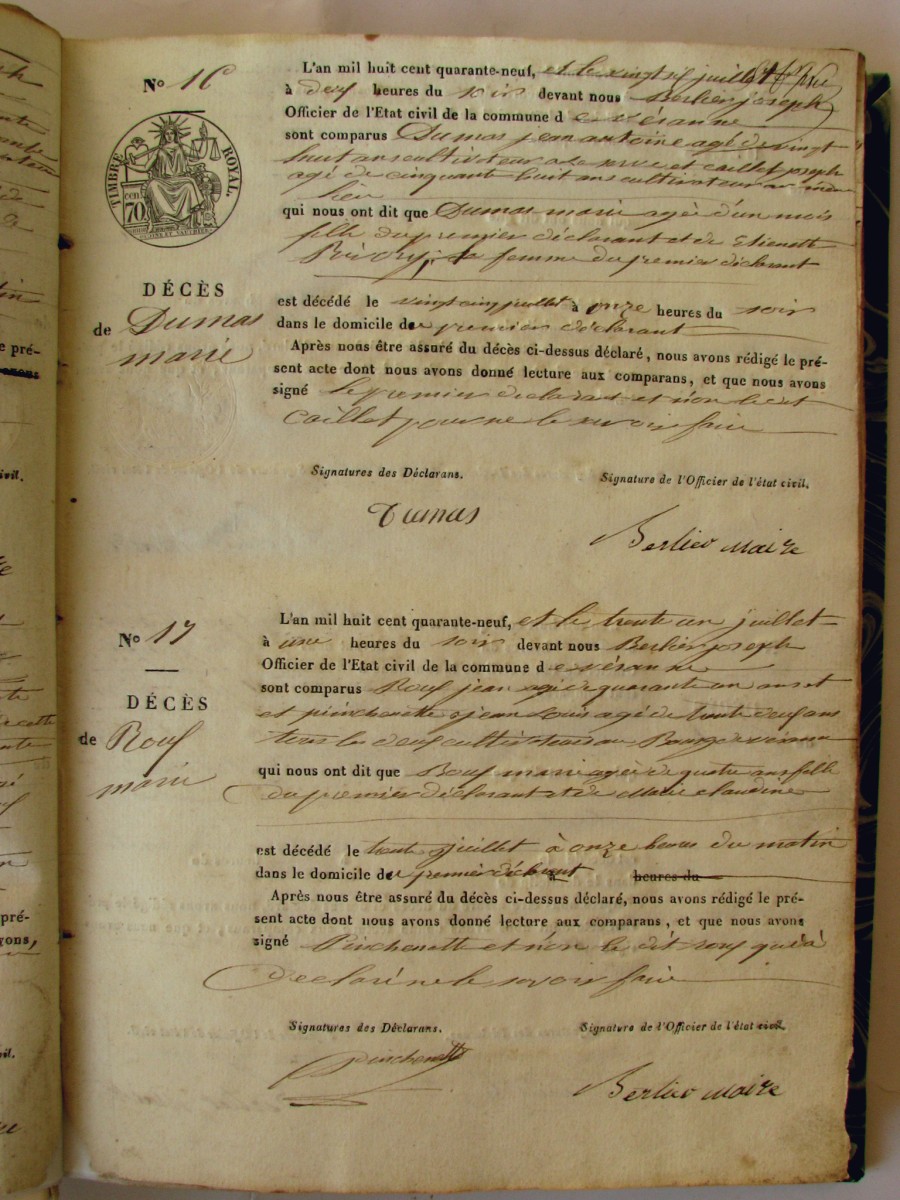 No 16
TIMBRE ROYAL.
70
L'an mil huit cent quarante-neuf, et le vingt six juillet
à deux heures du soir devant nous Berlier joseph
Officier de l'Etat civil de la commune de véranne
sont comparus Dumas jean antoine agé de vingt
huit ans cultivateur a et caillet joseph
agé de cinquante huit ans cultivateur au meme
lieu
qui nous ont dit que Dumas marie agée d'un mois
fille du premier déclarant et de
femme du premier déclarant
DÉCÈS
de Dumas
marie
est décédé le vingt cinq juillet à onze heures du soir
dans le domicile du premier déclarant
Après nous être assuré du décès ci-dessus déclaré, nous avons rédigé le pré-
sent acte dont nous avons donné lecture aux comparans, et que nous avons
signé le premier déclarant et non le dit
Caillet pour ne le savoir faire
Signatures des Déclarans.
Signature de l'Officier de l'état civil.
Dumas
Berlier Maire
No 17
L'an mil huit cent quarante-neuf, et le trente un juillet
à une heures du soir devant nous Berlier joseph
Officier de l'Etat civil de la commune de véranne
sont comparus Rouf jean agé de quarante un ans et
et pinchenette jean louis agé de trente deux ans
tous les deux cultivateurs au Bourg de véranne
DÉCÈS
de Rouf
marie
qui nous ont dit que Rouf marie agée de quatre ans fille
du premier déclarant et de claudine
est décédé le trente juillet à onze heures du matin
dans le domicile du premier déclarant à heures du
Après nous être assuré du décès ci-dessus déclaré, nous avons rédigé le pré-
sent acte dont nous avons donné lecture aux comparans, et que nous avons
signé Pinchenette et non le dit rouf qui a
déclaré ne le savoir faire
Signatures des Déclarans.
Signature de l'Officier de l'état civil.
pinchenette
Berlier Maire